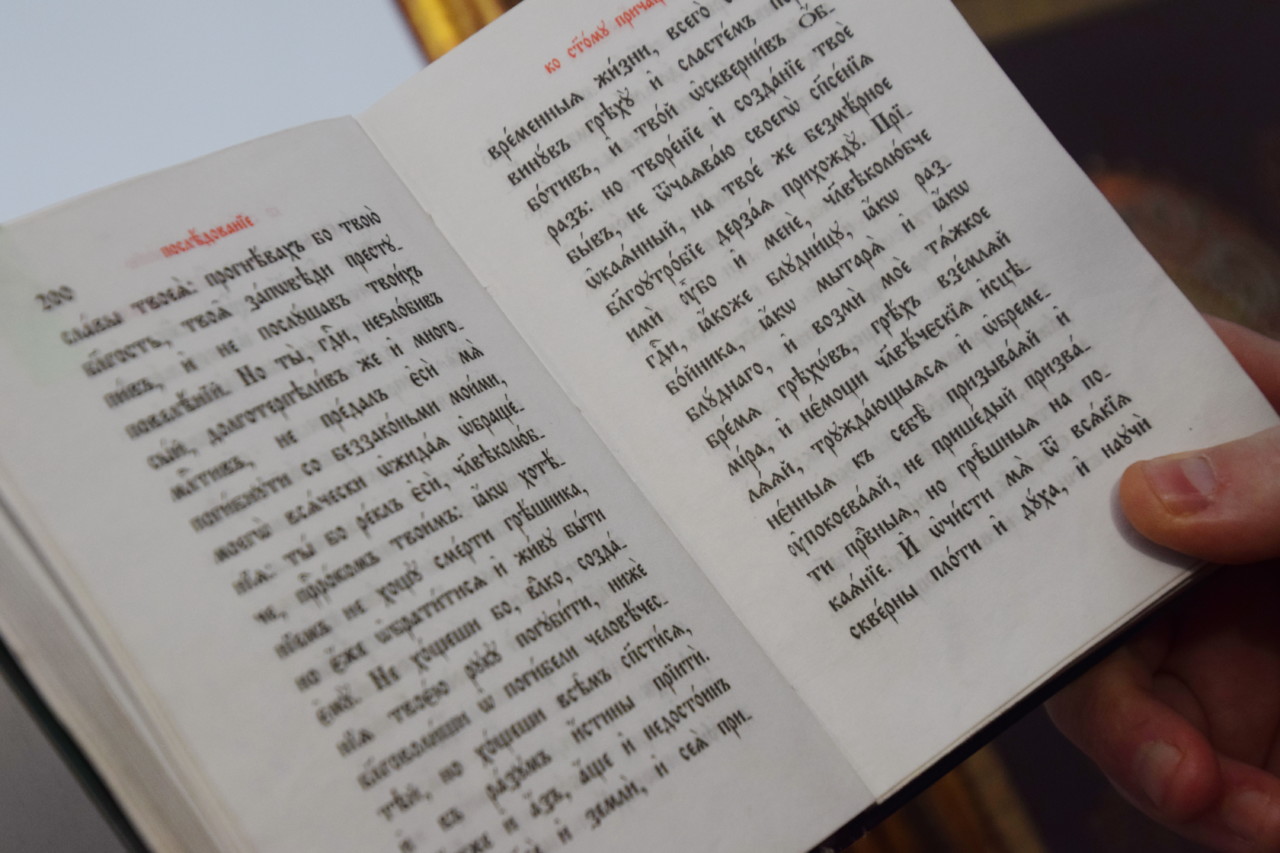 200
послѣ́дованїе
сла́вы твоеѧ̀: прогнѣ́вахъ бо твою̀
бл҃гость, твоѧ̑ за́пѡвѣди престꙋ-
пи́въ, и҆ не послꙋ́шавъ твои́хъ
повелѣ́нїй. Но ты̀, гдⷭ҇и, неѕло́бивъ
сы́й, долготерпѣли́въ же и҆ много-
млⷭ҇тивъ, не пре́далъ є҆сѝ мѧ̀
поги́бнꙋти со беззако́ньми мои́ми,
моегѡ̀ всѧ́чески ѡ҆жида́ѧ ѡ҆браще́-
нїѧ: ты́ бо ре́клъ є҆сѝ, чл҃вѣколю́б-
че, прⷪ҇ро́комъ твои́мъ: ꙗ҆́кѡ хотѣ́-
нїемъ не хощꙋ̀ сме́рти грѣ́шника,
но є҆́же ѡ҆брати́тисѧ и҆ жи́вꙋ бы́ти
є҆мꙋ̀. Не хо́щеши бо, влⷣко, созда́-
нїѧ твоє́ю рꙋкꙋ̀ погꙋби́ти, ниже́
бл҃говоли́ши ѡ҆ поги́бели человѣ́чес-
тѣ́й, но хо́щеши всѣ̑мъ сп҃сти́сѧ,
и҆ въ ра́зꙋмъ и҆́стины прїитѝ.
и҆ а҆́зъ, а҆́ще и҆ недосто́инъ
и҆ землѝ, и҆ сеѧ̀ при-
ко ст҃о́мꙋ
вре́менныѧ жи́зни, всего̀
винꙋ́въ грѣхꙋ̀ и҆ сласте́мъ
бо́тивъ, и҆ тво́й ѡ҆скверни́въ ѻ҆́б-
разъ: но творе́нїе и҆ созда́нїе твоѐ
бы́въ, не ѿчаѧва́ю своегѡ̀ сп҃се́нїѧ
ѡ҆каѧ́нный, на твоє́ же безмѣ́рное
бл҃гоꙋтро́бїе дерза́ѧ прихождꙋ̀. Прїи-
имѝ ᲂу҆̀бо и҆ менѐ, чл҃вѣколю́бче
гдⷭ҇и, ꙗ҆́коже блꙋдни́цꙋ, ꙗ҆́кѡ раз-
бо́йника, ꙗ҆́кѡ мытарѧ̀ и҆ ꙗ҆́кѡ
блꙋ́днаго, и҆ возмѝ моѐ тѧ́жкое
бре́мѧ грѣхѡ́въ, грѣ́хъ взе́млѧй
мі́ра, и҆ нє́мощи чл҃вѣ́чєскїѧ и҆сцѣ-
лѧ́ѧй, трꙋжда́ющыѧсѧ и҆ ѡ҆бреме-
не́нныѧ къ себѣ̀ призыва́ѧй и҆
ᲂу҆покоева́ѧй, не прише́дый призва́-
ти првⷣныѧ, но грѣ́шныѧ на по-
каѧ́нїе. И҆ ѡ҆чи́сти мѧ̀ ѿ всѧ́кїѧ
скве́рны пло́ти и҆ дꙋ́ха, и҆ наꙋчи́